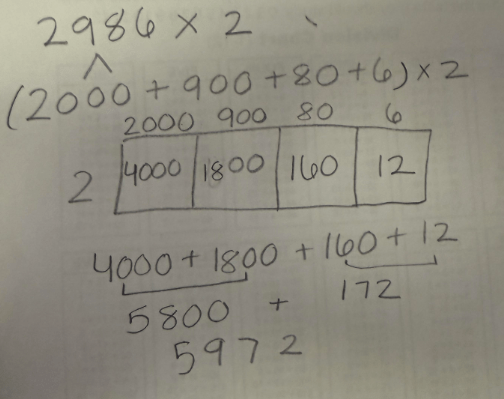 2986 × 2
(2000 + 900 + 80 + 6) × 2
2000 900 80 6
2 4000 1800 160 12
4000 + 1800 + 160 + 12
5800 + 172
5972